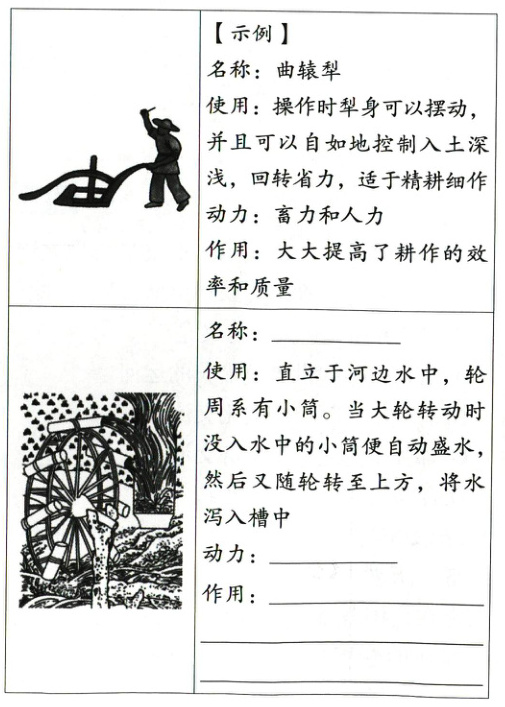 【示例】
名称：曲辕犁
使用：操作时犁身可以摆动，
并且可以自如地控制入土深
浅，回转省力，适于精耕细作
动力：畜力和人力
作用：大大提高了耕作的效
率和质量
名称：
使用：直立于河边水中，轮
周系有小筒。当大轮转动时
没入水中的小筒便自动盛水，
然后又随轮转至上方，将水
泻入槽中
动力：
作用：